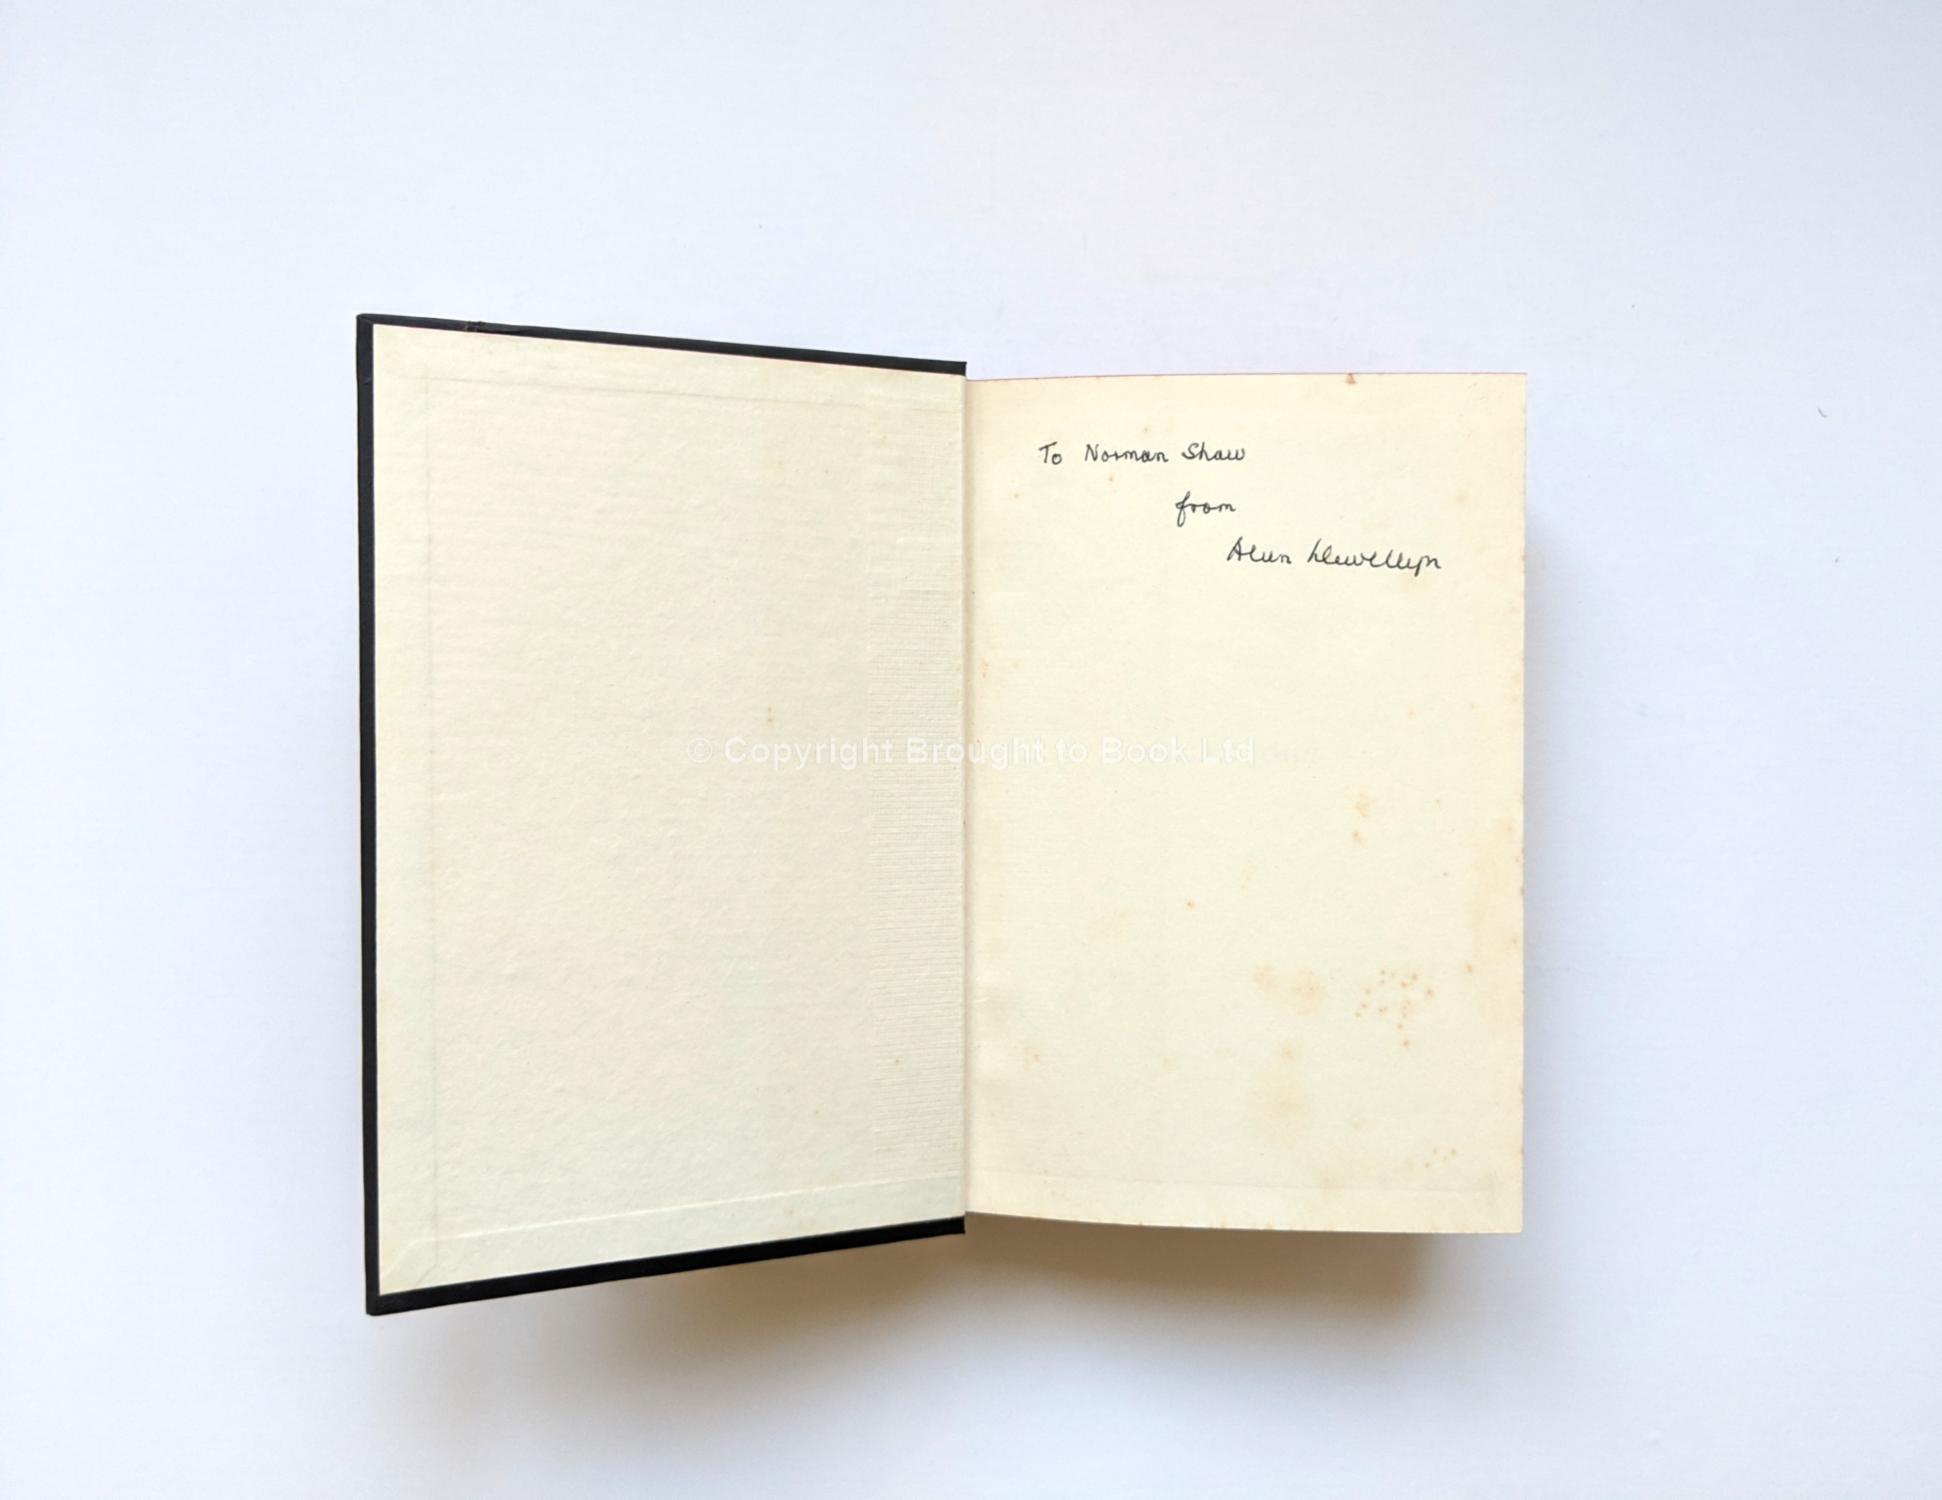 To Norman Shaw
from
Alun Llewellyn
© Copyright Brought to Book Ltd